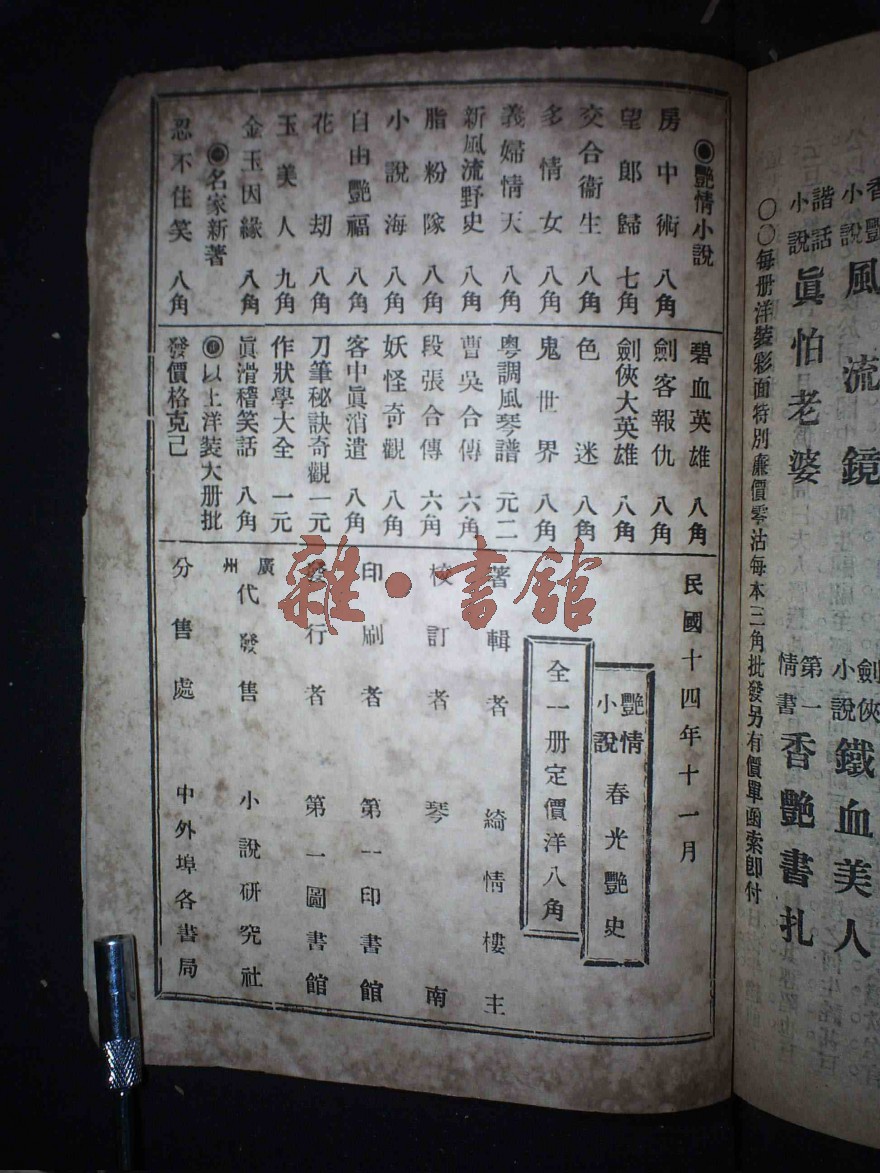 香艷小說 風流鏡
劍俠小說 鐵血美人
諧話小說 眞怕老婆
第一情書 香艷書扎
〇〇每册洋裝彩面特別廉價零沽每本三角批發另有價單函索卽付
◉艷情小說
房中術 八角
望郎歸 七角
交合衞生 八角
多情女 八角
義婦情天 八角
新風流野史 八角
脂粉隊 八角
小說海 八角
自由艷福 八角
花劫 八角
玉美人 九角
金玉因緣 八角
◉名家新著
忍不住笑 八角
碧血英雄 八角
劍客報仇 八角
劍俠大英雄 八角
色迷 八角
鬼世界 八角
粵調風琴譜 元二
曹吳合傳 六角
段張合傳 六角
妖怪奇觀 八角
客中眞消遣 八角
刀筆秘訣奇觀 一元
作狀學大全 一元
眞滑稽笑話 八角
◉以上洋裝大册批
發價格克己
民國十四年十一月
艷情小說 春光艷史
全一册定價洋八角
著輯者 綺情樓主
校訂者 琴南
印刷者 第一印書館
發行者 第一圖書館
廣州代發售 小說研究社
分售處 中外埠各書局
雜·書館